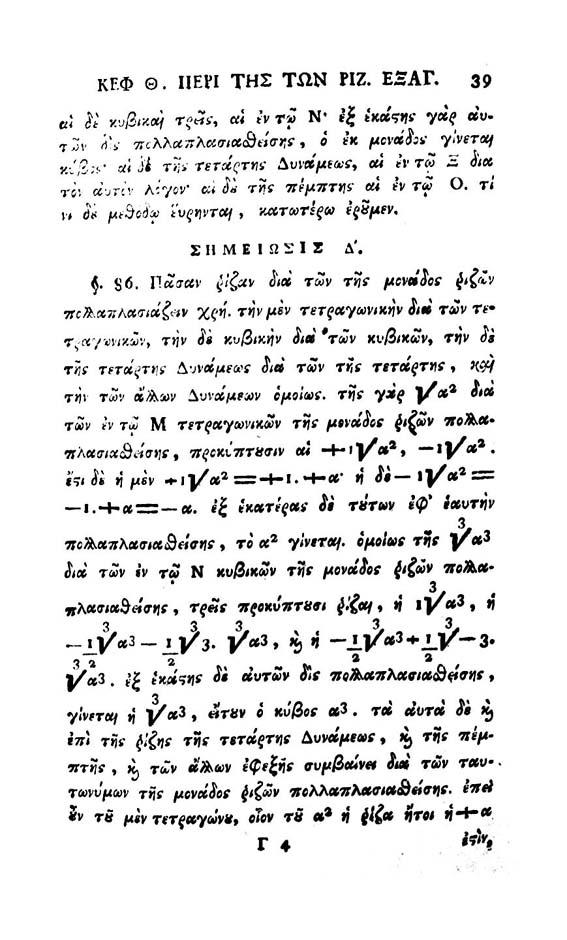 ΚΕΦ Θ. ΠΕΡΙ ΤΗΣ ΤΩΝ ΡΙΖ. ΕΞΑΓ. 39
αἱ δὲ κυβικαὶ τρεῖς, αἱ ἐν τῷ Ν· ἐξ ἑκάστης γὰρ αὐ-
τῶν δὶς πολλαπλασιασθείσης, ὁ ἐκ μονάδος γίνεται
κύβος· αἱ δὲ τῆς τετάρτης Δυνάμεως, αἱ ἐν τῷ Ξ διὰ
τὸν αὐτὸν λόγον· αἱ δὲ τῆς πέμπτης αἱ ἐν τῷ Ο. τί
νι δὲ μεθόδῳ εὕρηνται, κατωτέρω ἐροῦμεν.
ΣΗΜΕΙΩΣΙΣ Δ΄.
§. 86. Πᾶσαν ῥίζαν διὰ τῶν τῆς μονάδος ῥιζῶν
πολλαπλασιάζειν χρή. τὴν μὲν τετραγωνικὴν διὰ τῶν τε-
τραγωνικῶν, τὴν δὲ κυβικὴν διὰ τῶν κυβικῶν, τὴν δὲ
τῆς τετάρτης Δυνάμεως διὰ τῶν τῆς τετάρτης, καὶ
τὴν τῶν ἄλλων Δυνάμεων ὁμοίως. τῆς γὰρ √α² διὰ
τῶν ἐν τῷ Μ τετραγωνικῶν τῆς μονάδος ῥιζῶν πολλα-
πλασιασθείσης, προκύπτουσιν αἱ +1√α², −1√α².
ἔστι δὲ ἡ μὲν +1√α² = +1.+α· ἡ δὲ −1√α² =
−1.+α = −α. ἐξ ἑκατέρας δὲ τούτων ἐφ' ἑαυτὴν
πολλαπλασιασθείσης, τὸ α² γίνεται. ὁμοίως τῆς ∛α3
διὰ τῶν ἐν τῷ Ν κυβικῶν τῆς μονάδος ῥιζῶν πολλα-
πλασιασθείσης, τρεῖς προκύπτουσι ῥίζαι, ἡ 1∛α3, ἡ
−1/2∛α3 − 1/2∛3. ∛α3, καὶ ἡ −1/2∛α3 + 1/2∛−3.
∛α3. ἐξ ἑκάστης δὲ αὐτῶν δὶς πολλαπλασιασθείσης,
γίνεται ἡ ∛α3, εἴτουν ὁ κύβος α3. τὰ αὐτὰ δὲ καὶ
ἐπὶ τῆς ῥίζης τῆς τετάρτης Δυνάμεως, καὶ τῆς πέμ-
πτης, καὶ τῶν ἄλλων ἐφεξῆς συμβαίνει διὰ τῶν ταυ-
τωνύμων τῆς μονάδος ῥιζῶν πολλαπλασιασθείσης. ἐπεὶ
οὖν τοῦ μὲν τετραγώνου, οἷον τοῦ α² ἡ ῥίζα ἤτοι ἡ +α
Γ 4 ἐστὶν,